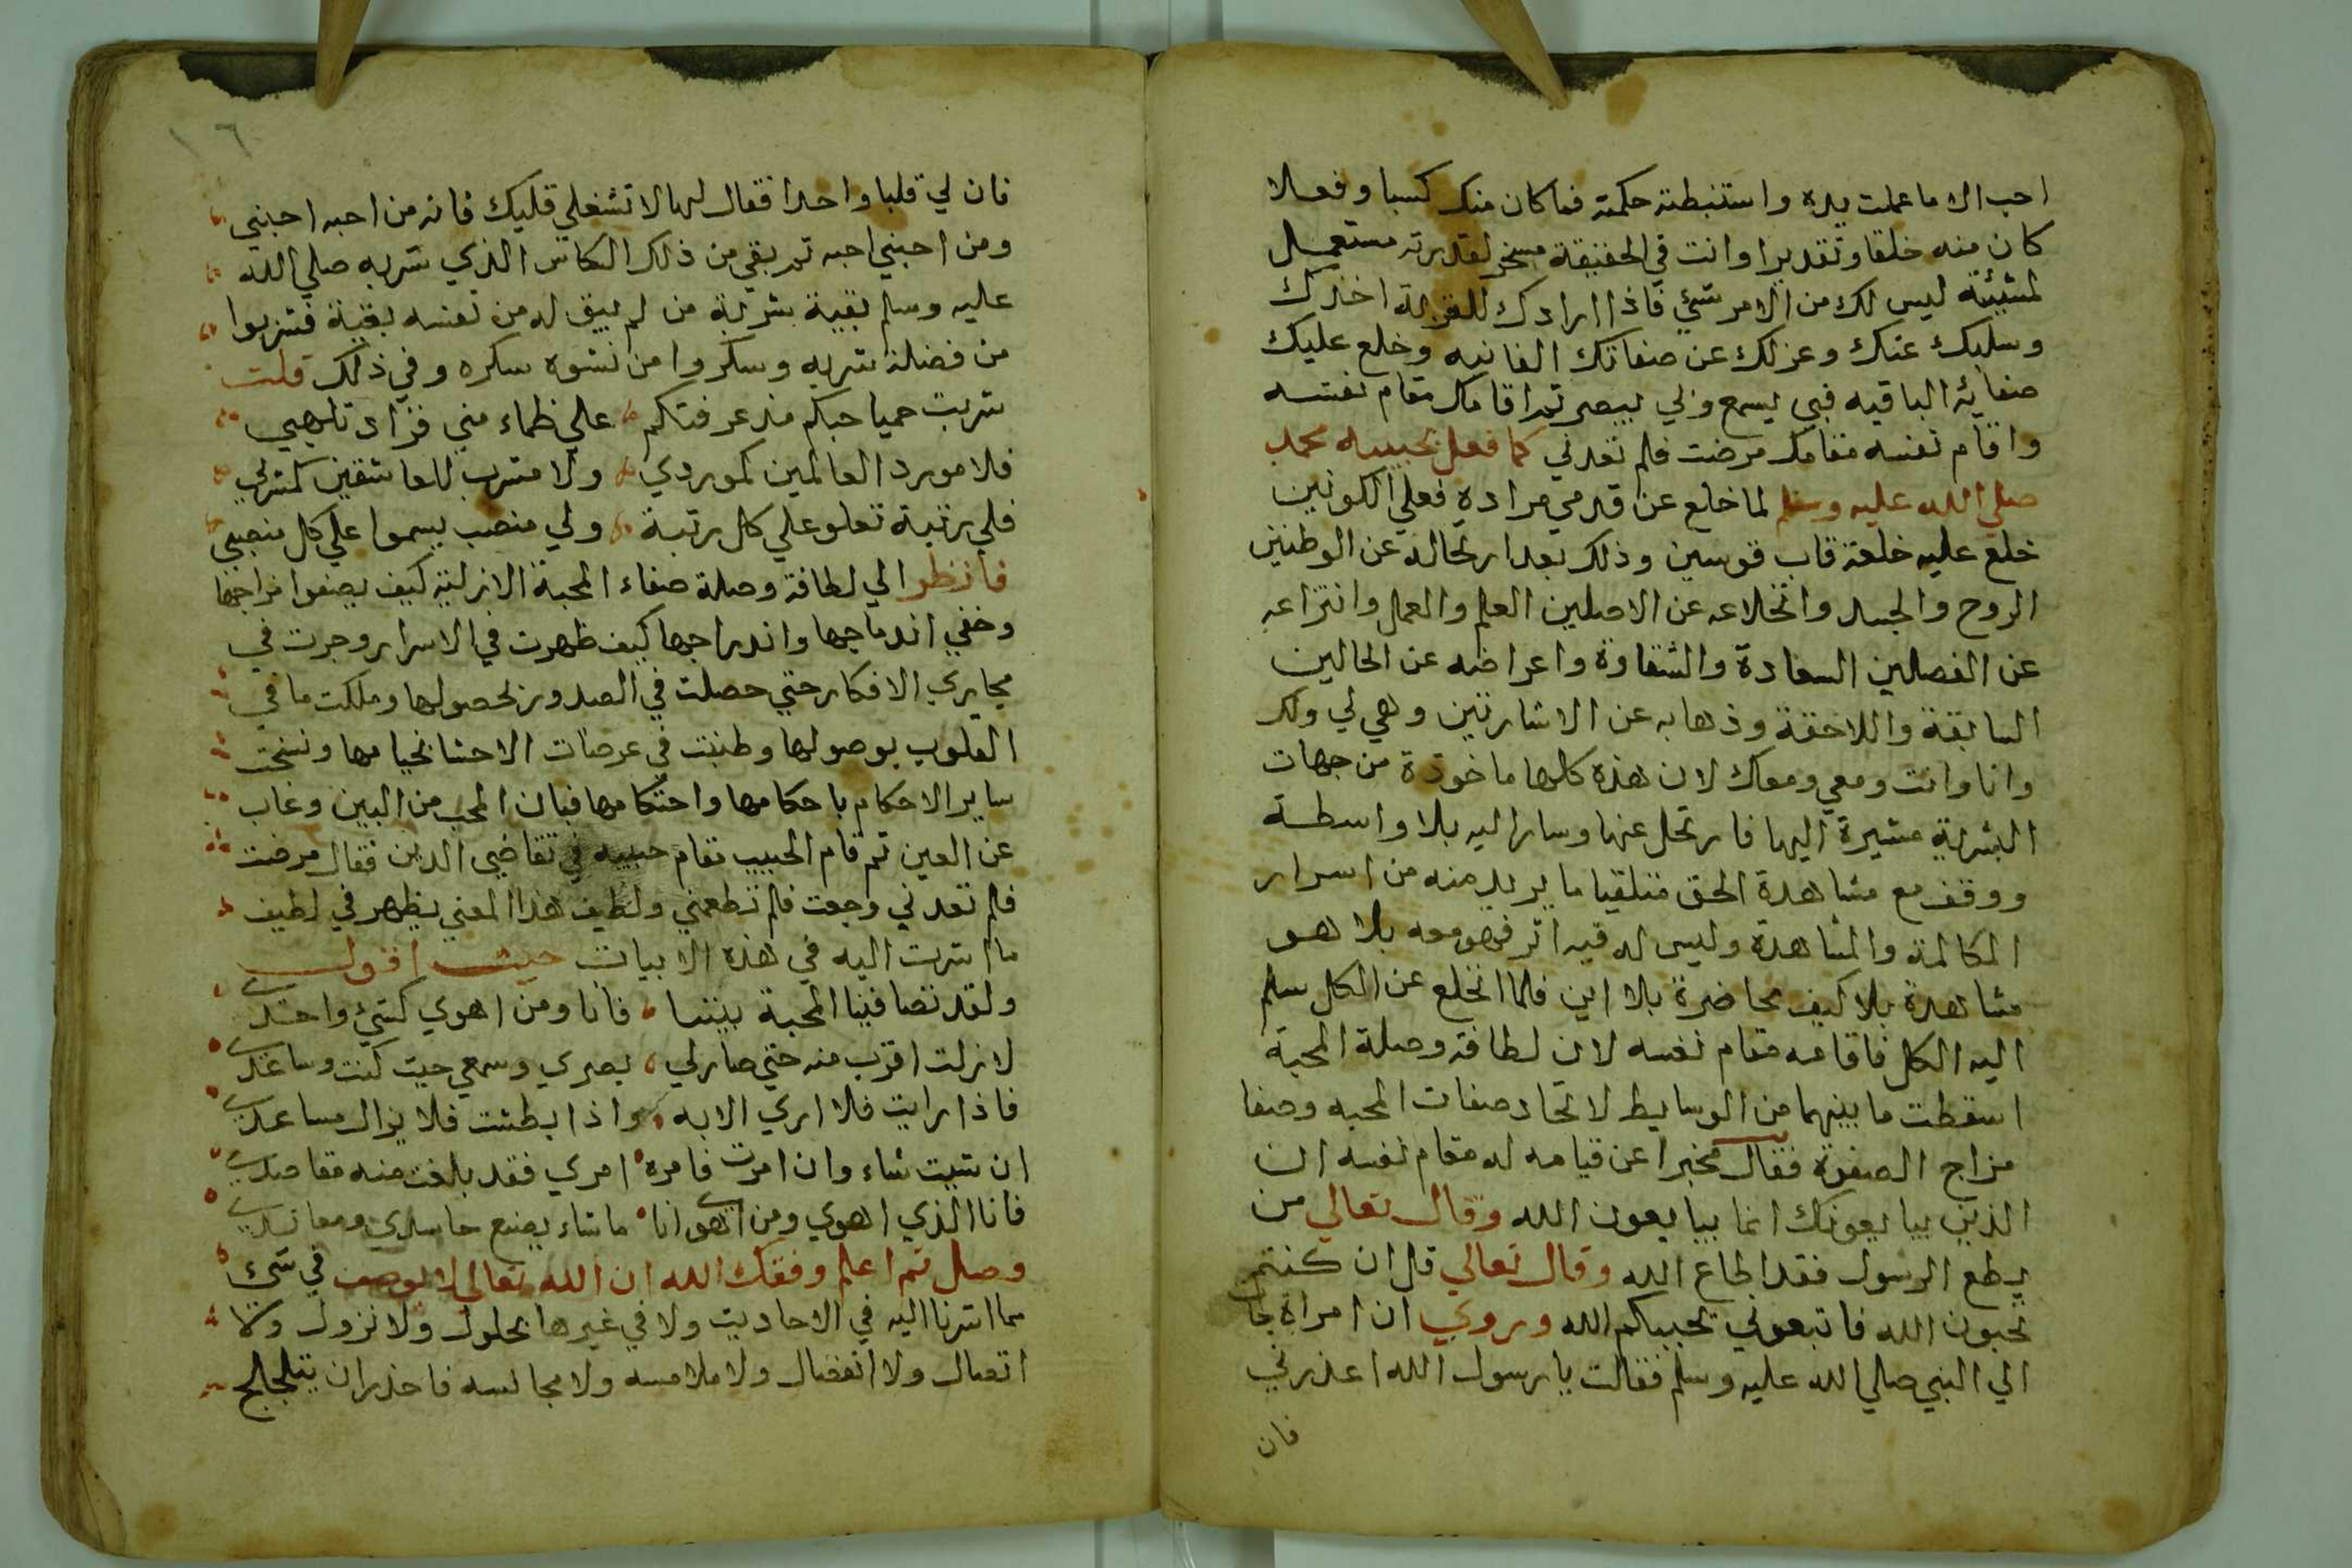 احب الا ما عملت يده واستنبطته حكمته فما كان منك كسبا وفعلا
كان منه خلقا وتقديرا وانت في الحقيقة مسخر لقدرته مستعمل
لمشيئته ليس لك من الامر شيء فاذا ارادك للقربة اخذك
وسلبك عنك وعزلك عن صفاتك الفانيه وخلع عليك
صفاته الباقيه فبي يسمع وبي يبصر ثم اقامك مقام نفسه
واقام نفسه مقامك مرضت فلم تعدني كما فعل بحبيبه محمد
صلي الله عليه وسلم لما خلع عن قدمي مراده فعلي الكونين
خلع عليه خلعة قاب قوسين وذلك بعد ارتحاله عن الوطنين
الروح والجسد وانخلاعه عن الاصلين العلم والعمل وانتزاعه
عن الفصلين السعادة والشقاوة واعراضه عن الحالين
السابقة واللاحقة وذهابه عن الاشارتين وهي لي ولك
وانا وانت ومعي ومعاك لان هذه كلها ماخوذة من جهات
البشرية مشيرة اليها فارتحل عنها وسار اليه بلا واسطة
ووقف مع مشاهدة الحق متلقيا ما يريد منه من اسرار
المكالمة والمشاهدة وليس له فيه اثر فهو معه بلا هو
مشاهدة بلا كيف محاضرة بلا اين فلما انخلع عن الكل سلم
اليه الكل فاقامه مقام نفسه لان لطافة وصلة المحبة
اسقطت ما بينهما من الوسايط لاتحاد صفات المحبه وصفا
مزاج الصفوة فقال مخبرا عن قيامه له مقام نفسه ان
الذين يبايعونك انما يبايعون الله وقال تعالي من
يطع الرسول فقد اطاع الله وقال تعالي قل ان كنتم
تحبون الله فاتبعوني يحببكم الله وروي ان امراة جا
الي النبي صلي الله عليه وسلم فقالت يا رسول الله اعذرني
فان
١٦
فان لي قلبا واحدا فقال لها لا تشغلي قلبك فانه من احبه احبني
ومن احبني احبه ثم بقي من ذلك الكاس الذي شربه صلي الله
عليه وسلم بقية بشربة من لم يبق له من نفسه بقية فشربوا
من فضلة شربه وسكروا من نشوة سكره وفي ذلك قلت
شربت حميا حبكم مذ عرفتكم علي ظماء مني فزاد تلهبي
فلا مورد العالمين كموردي ولا مشرب للعاشقين كمشربي
فلي رتبة تعلو علي كل رتبة ولي منصب يسموا علي كل منصبي
فانظر الي لطافة وصلة صفاء المحبة الازلية كيف يصفوا مزاجها
وخفي اندماجها واندراجها كيف ظهرت في الاسرار وجرت في
مجاري الافكار حتي حصلت في الصدور بحصولها وملكت ما في
القلوب بوصولها وطنبت في عرصات الاحشا بخيامها ونسخت
ساير الاحكام باحكامها واحتكامها فبان المحب من البين وغاب
عن العين ثم قام الحبيب مقام حبيبه في تقاضي الدين فقال مرضت
فلم تعدني وجعت فلم تطعمني ولطيف هذا المعني يظهر في لطيف
ما اشرت اليه في هذه الابيات حيث اقول
ولقد تصافينا المحبة بيننا فانا ومن اهوي كشيء واحدي
لا زلت اقرب منه حتي صار لي بصري وسمعي حيث كنت وساعدي
فاذا رايت فلا اري الا به واذا بطشت فلا يزال مساعدي
ان شيت شاء وان امرت فامره امري فقد بلغت منه مقاصدي
فانا الذي اهوي ومن اهوي انا ما شاء يصنع حاسدي ومعاندي
وصل ثم اعلم وفقك الله ان الله تعالي لا يوصف في شيء
مما اشرنا اليه في الاحاديث ولا في غيرها بحلول ولا نزول ولا
اتصال ولا انفصال ولا ملامسه ولا مجالسه فاحذر ان يتلجلج